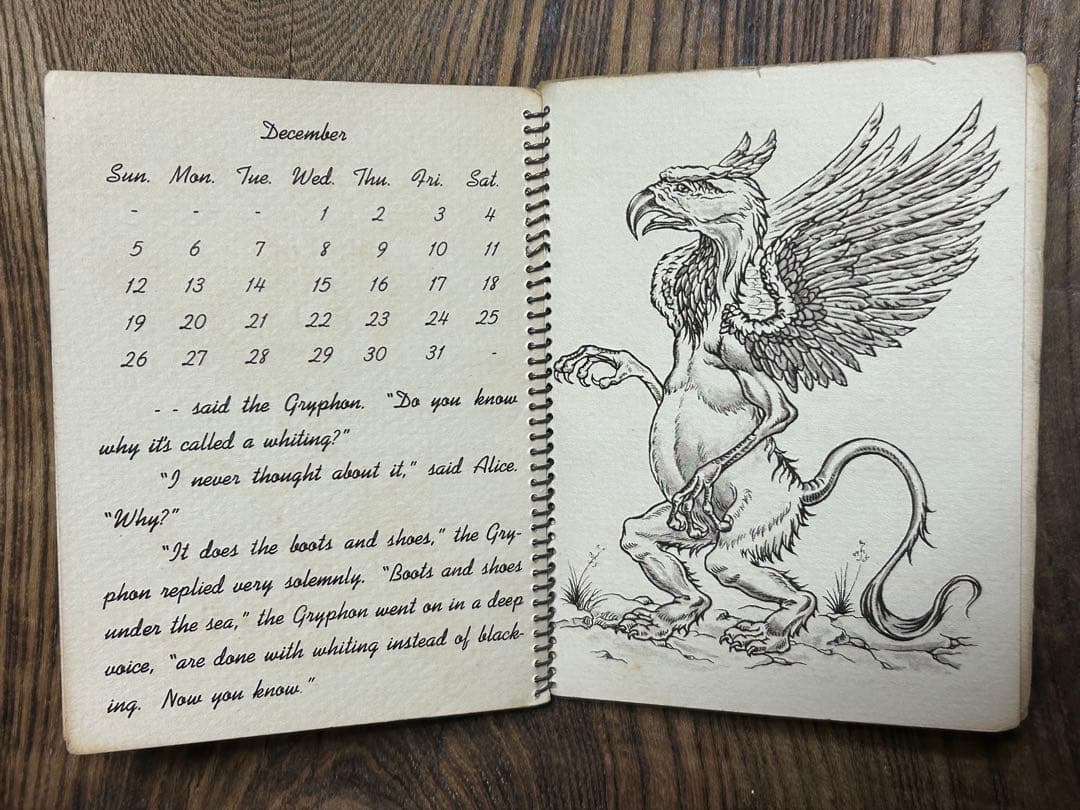 December
Sun. Mon. Tue. Wed. Thu. Fri. Sat.
- - - 1 2 3 4
5 6 7 8 9 10 11
12 13 14 15 16 17 18
19 20 21 22 23 24 25
26 27 28 29 30 31 -
- - said the Gryphon. "Do you know
why it's called a whiting?"
"I never thought about it," said Alice.
"Why?"
"It does the boots and shoes," the Gry-
phon replied very solemnly. "Boots and shoes
under the sea," the Gryphon went on in a deep
voice, "are done with whiting instead of black-
ing. Now you know."